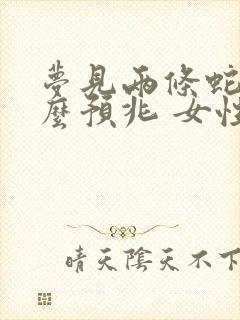 夢見兩條蛇
麼預兆 女性
晴天陰天不下